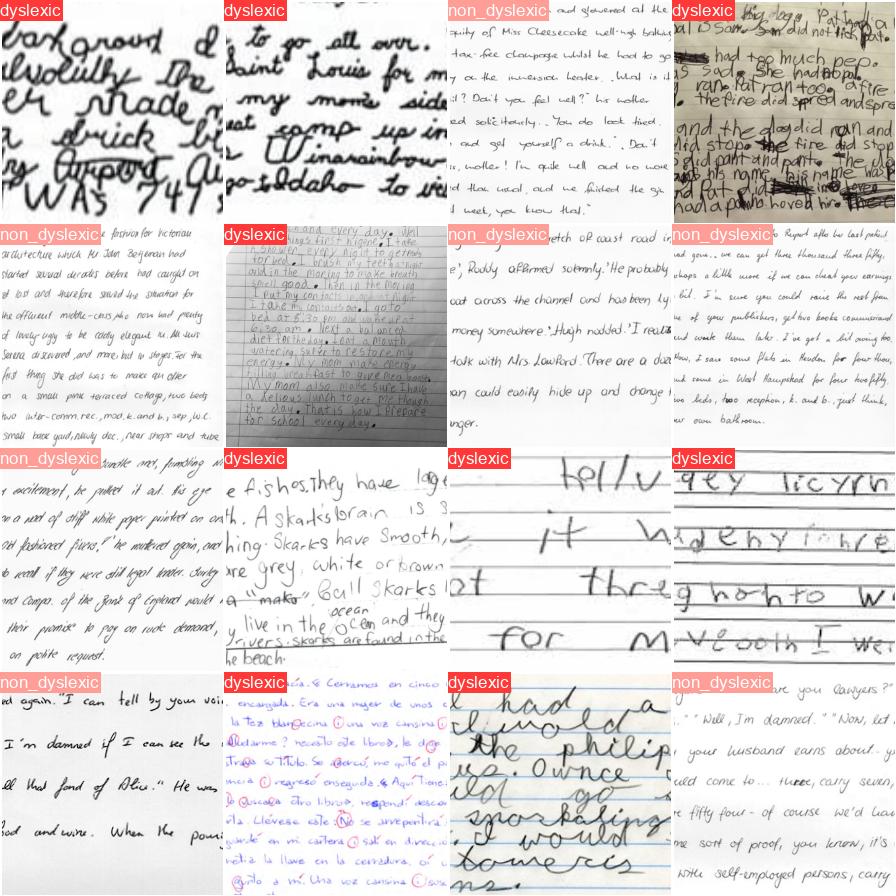 dyslexic
background d
The
er made
a brick bi
ry Airport Au
WAs 747 s
dyslexic
to go all over.
Saint Louis for m
my mom's side
eat camp up in
Winarainbow
go to Idaho to vis
non_dyslexic
and glowered at the
quity of Miss Cheesecake well-nigh baking
tax-free champagne whilst he had to go
y on the immersion heater. What is it
il? Don't you feel well?" his mother
ed solicitously. "You do look tired.
and get yourself a drink." "Don't
, mother! I'm quite well and no more
d than usual, and we finished the gin
week, you know that."
dyslexic
big dog. Pat had a
al is Sam. Sam did not lick pat.
had too much pep.
s sad. She had
ran. Pat ran too. a fire
. the fire did spred and spre
and the dog did ran and
did stop. the fire did stop
did pant and pant. The do
his name, his name was
nd Pat did in love
had a
non_dyslexic
the fashion for Victorian
architecture which Mr John Betjeman had
started several decades before had caught on
at last and therefore saved the situation for
the affluent middle-class, who now had plenty
of lovely-ugly to be coolly elegant in. All this
Serena discovered, and more, but in stages. For the
first thing she did was to make an offer
on a small pink terraced cottage, two beds
two inter-comm. rec., mod. k. and b., sep. w.c.
small back yard, newly dec., near shops and tube
dyslexic
and every day. Well
things first higene. I take
a shower every night to get redy
for bed. I brush my teeth at night
and in the moring to make breath
smell good. Then in the moring
I put my contacts in and at night
I take my contacts out. I go to
bed at 8:30 pm and wake up at
6:30 am. Next a balanced
diet for the day. I eat a mouth
watering to restore my
energy. My mom make energy
My mom also make sure I have
a delious lunch to get me though
the day. That is how I prepare
for school every day.
non_dyslexic
stretch of coast road in
e', Roddy affirmed solemnly. 'He probably
oat across the channel and has been ly
money somewhere.' Hugh nodded. 'I realis
talk with Mrs. Lawford. There are a doz
an could easily hide up and change t
nger.
non_dyslexic
to Rupert after her last period
and gone.. we can get three thousand three fifty,
erhaps a little more if we can cheat your earnings
bit. I'm sure you could raise the rest from
e of your publishers, get two books commissioned
and write them later. I've got a bit owing too.
Now, I saw some flats in Hendon for four thou,
nd some in West Hampstead for four two fifty,
wo beds, two reception, k. and b., just think,
ur own bathroom.
non_dyslexic
candle and, fumbling wi
excitement, he pulled it out. His eye
on a wad of stiff white paper printed on one
old fashioned fivers," he muttered again, and
to recall if they were still legal tender. Surely
and Compa. of the Bank of England would
their promise to pay on rude demand,
on polite request.
dyslexic
e fishos, they have large
th. A skark's brain is s
hing. Skarks have smooth,
are grey, white or brown
a "mako" Bull Skarks l
ocean
y live in the ocen and they
y rivers. skarks are found in the
he beach.
dyslexic
it w
at three
for m
dyslexic
non_dyslexic
ed again. "I can tell by your voi
I'm damned if I can see the
ll that fond of Alice." He was
ood and wine. When the pouri
dyslexic
cía. & Cerramos en cinco
encargada. Era una mujer de unos c
la Tez blanqecina i una voz cansina
Alludarme? necesito este libros, le
Trás su título. Se acercó, me quitó el p
mció i regresó enseguida. & Aquí Tiene
b otro libros, respondí descar
ila. Llévese este. No se arrepentirá
guardé en mi cartera i salí en direcci
metía la llave en la cerradura, oí u
qunto a mí. Una voz cansina i sus
dyslexic
I had a
I wold
the philip
us. Ownce
uld go
snorkaling
. I would
towers
ns.
non_dyslexic
are you lawyers?"
" "Well, I'm damned." "Now, let
your husband earns about - y
uld come to... three, carry seven,
e fifty four - of course we'd hav
me sort of proof, you know, it's
with self-employed persons, carry